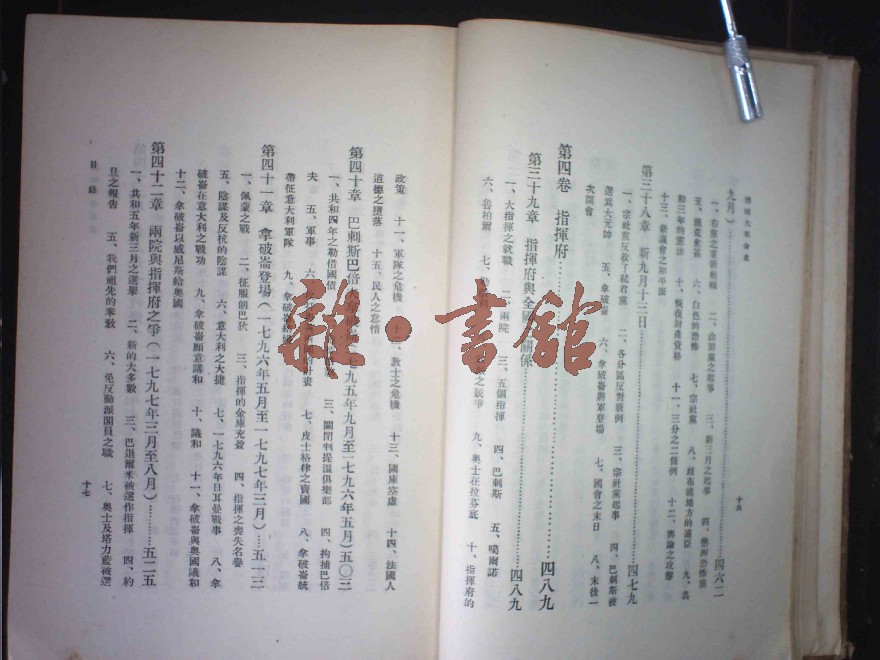 九月）……四六二
一、右黨之重新組織　二、山田黨之起事　三、新三月之起事
五、國憲　六、白色的恐怖　七、宗社黨　八、 九、共
和三年的憲法　十、恢復財產資格　十一、三分之二條例　十二、輿論之攻擊
十三、新議會之和平派
第三十八章　新九月十三日……四七九
一、宗社黨反叛了弒君黨　二、各分區反對新例　三、宗社黨起事　四、巴剌斯被
選爲大元帥　五、拿破崙　六、拿破崙將軍登場　七、國會之末日　八、末後一
次開會
第四卷　指揮府……四八九
第三十九章　指揮府與全國 關係……四八九
一、大指揮之就職　二、兩院　三、五個指揮　四、巴剌斯　五、噶爾諾
六、魯柏爾　七、 之競爭　九、奧士在拉芬底　十、指揮府的
十六
政策　十一、軍隊之危機　十 、教士之危機　十三、國庫空虛　十四、法國人
道德之墮落　十五、民人之怠惰
第四十章　巴剌斯巴倍 七九五年九月至一七九六年五月）五〇三
一、共和四年之勒借國債　 三、關閉判提溫俱樂部　四、拘捕巴倍
夫　五、軍事　六、 計畫　七、皮士格律之賣國　八、拿破崙統
帶征意大利軍隊　九、拿破崙
第四十一章　拿破崙登場（一七九六年五月至一七九七年三月）……五一三
一、佩蒙之戰　二、征服朗巴狄　三、指揮的金庫充盈　四、指揮之喪失名譽
五、陰謀及反抗的陰謀　六、意大利之大捷　七、一七九六年日耳曼戰事　八、拿
破崙在意大利之戰功　九、拿破崙願意講和　十、議和　十一、拿破崙與奧國議和
十二、拿破崙以威尼斯給奧國
第四十二章　兩院與指揮府之爭（一七九七年三月至八月）……五二五
一、共和五年新三月之選舉　二、新的大多數　三、巴退爾米被選作指揮　四、約
旦之報告　五、我們祖先的奉教　六、免反動派閣員之職　七、奧士及塔力藍被選
目錄
十七
雜·書館